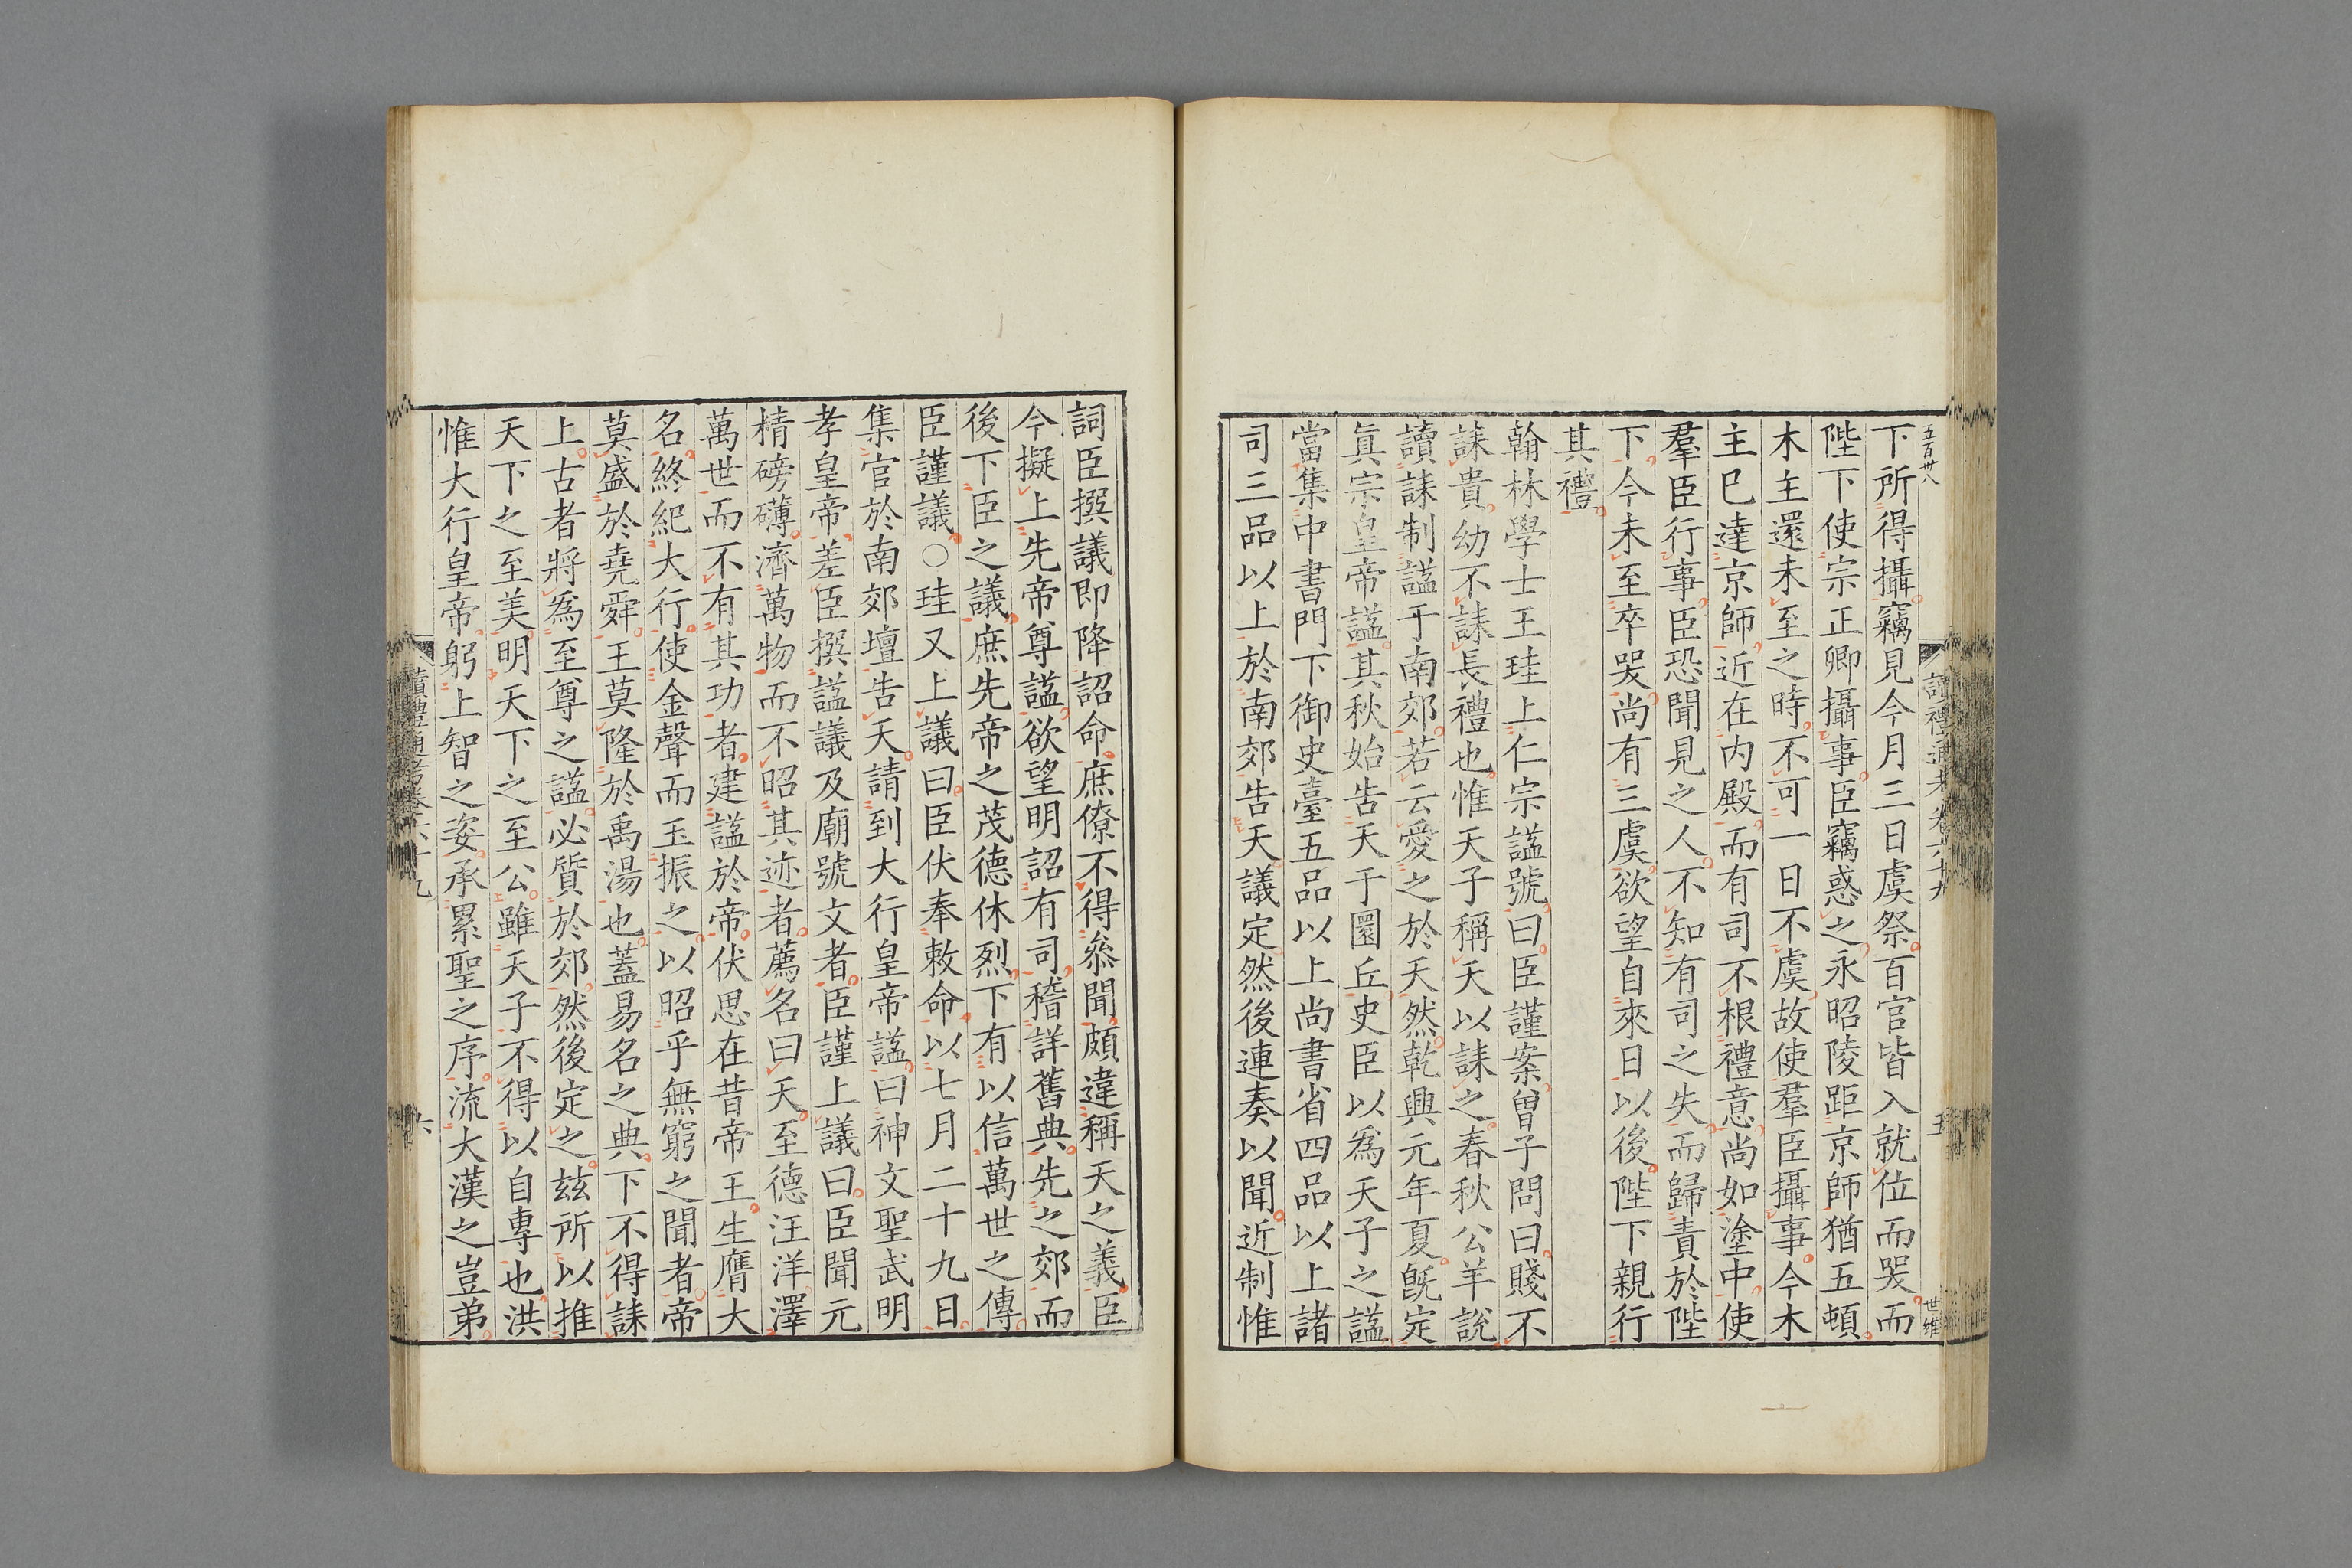 五百卅八
讀禮通考卷六十九
五
世維
下所得攝竊見今月三日虞祭百官皆入就位而哭而
陛下使宗正卿攝事臣竊惑之永昭陵距京師猶五頓
木主還未至之時不可一日不虞故使羣臣攝事今木
主已達京師近在內殿而有司不根禮意尚如塗中使
羣臣行事臣恐聞見之人不知有司之失而歸責於陛
下今未至卒哭尚有三虞欲望自來日以後陛下親行
其禮
翰林學士王珪上仁宗謚號曰臣謹案曾子問曰賤不
誄貴幼不誄長禮也惟天子稱天以誄之春秋公羊說
讀誄制謚于南郊若云愛之於天然乾興元年夏旣定
眞宗皇帝謚其秋始吿天于圜丘史臣以爲天子之謚
當集中書門下御史臺五品以上尚書省四品以上諸
司三品以上於南郊吿天議定然後連奏以聞近制惟
詞臣撰議即降詔命庶僚不得叅聞頗違稱天之義臣
今擬上先帝尊謚欲望明詔有司稽詳舊典先之郊而
後下臣之議庶先帝之茂德休烈下有以信萬世之傳
臣謹議○珪又上議曰臣伏奉敕命以七月二十九日
集官於南郊壇吿天請到大行皇帝謚曰神文聖武明
孝皇帝差臣撰謚議及廟號文者臣謹上議曰臣聞元
精磅礴濟萬物而不昭其迹者薦名曰天至德汪洋澤
萬世而不有其功者建謚於帝伏思在昔帝王生膺大
名終紀大行使金聲而玉振之以昭乎無窮之聞者帝
莫盛於堯舜王莫隆於禹湯也蓋易名之典下不得誄
上古者將爲至尊之謚必質於郊然後定之玆所以推
天下之至美明天下之至公雖天子不得以自專也洪
惟大行皇帝躬上智之姿承累聖之序流大漢之豈弟
讀禮通考卷六十九
六